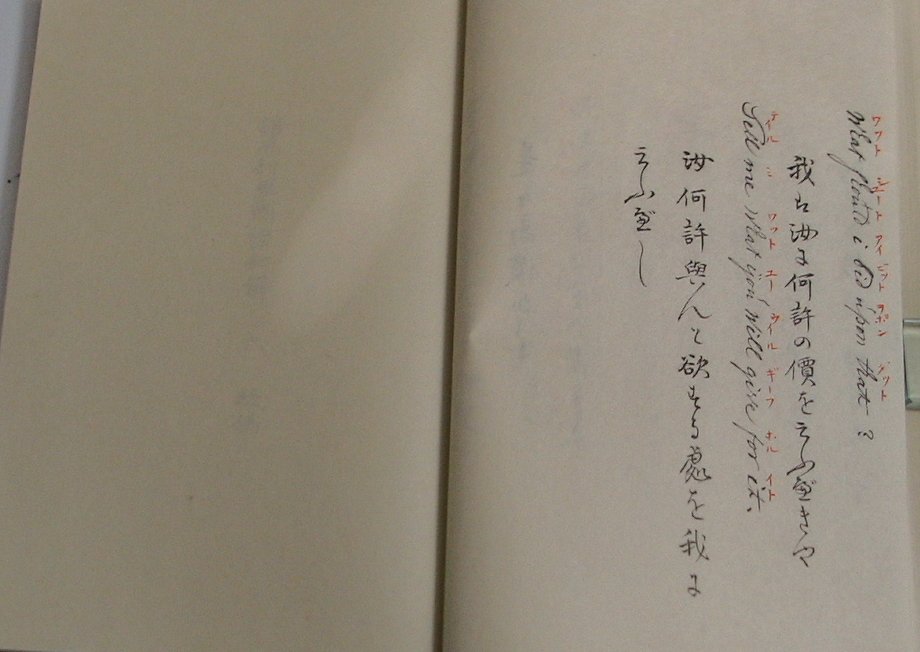 ワフト シュート アイ ビット ヲポン ダフト
What should i bid upon that?
我は汝に何許の價を云ふべきや
テイル ミ ワフト ユー ウイル ギーフ ホル イト
Tell me what you will give for it.
汝何許與んと欲する處を我に
云ふべし